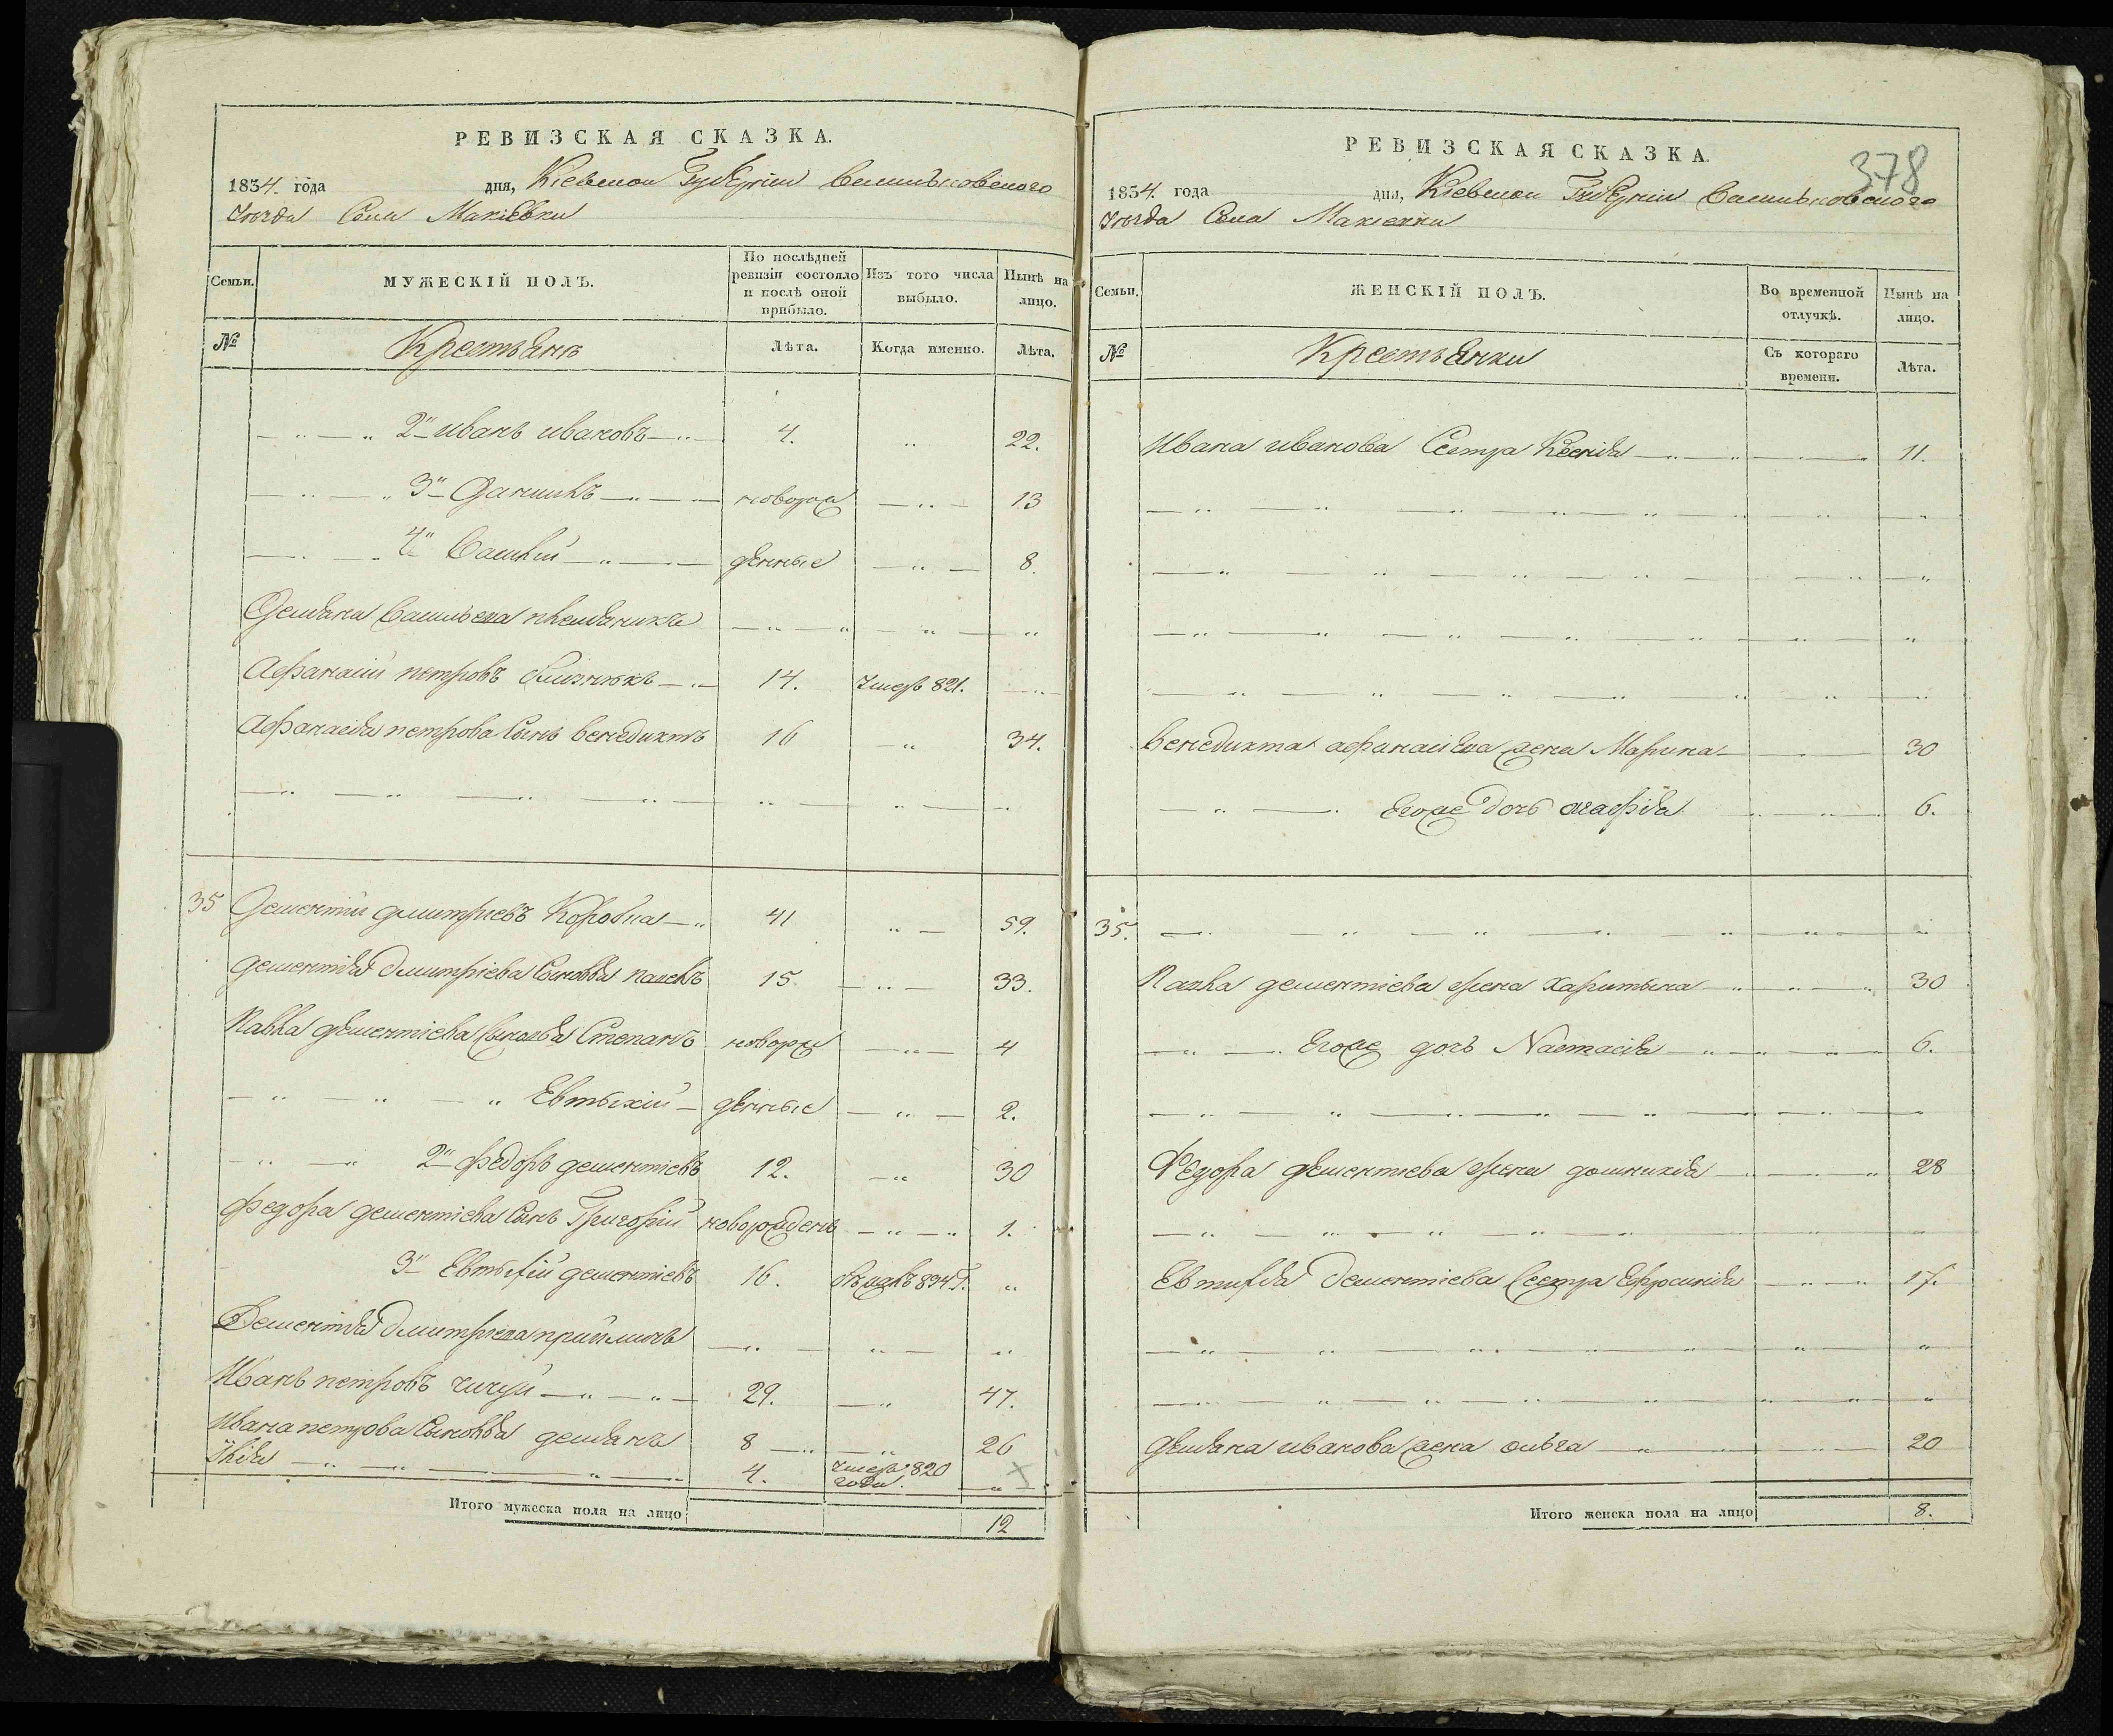 РЕВИЗСКАЯ СКАЗКА.
1834. года дня, Кіевской Губерніи Васильковского
уезда Села Макіевки
Семьи.
МУЖЕСКІЙ ПОЛЪ.
По послѣдней ревизіи состояло и послѣ оной прибыло.
Изъ того числа выбыло.
Нынѣ на лицо.
№
Крестьянъ
Лѣта.
Когда именно.
Лѣта.
2й иванъ ивановъ 4. 22.
3й Даниилъ новорож 13
4й Василий денные 8.
Демьяна Васильева племяникъ
Афанасий петровъ близнюкъ 14. умеръ 821.
Афанасия петрова Сынъ венедиктъ 16 34.
35 Дементий дмитриевъ Коробка 41 59.
Дементия Дмитриева Сыновья павелъ 15 33.
Павла дементиева Сыновья Степанъ новорож 4
Евтыхий денные 2.
2й федоръ дементиевъ 12. 30
Федора дементиева Сынъ Григорий новорожденъ 1.
3й дементиевъ 16. 834 г.
Дементия Дмитриева приймичъ
Иванъ петровъ 29. 47.
Ивана петрова Сыновья демьянъ 8 26
Илья 4. умеръ 820 года.
Итого мужеска пола на лицо 12
378
РЕВИЗСКАЯ СКАЗКА.
1834. года дня, Кіевской Губерніи Васильковского
уезда Села Макиевки
Семьи.
ЖЕНСКІЙ ПОЛЪ.
Во временной отлучкѣ.
Нынѣ на лицо.
№
Крестьянки
Съ котораго времени.
Лѣта.
Ивана иванова Сестра Ксения 11.
Венедикта афанасиева жена Марина 30
Егоже дочь агафия 6.
35.
Павла дементиева жена харитына 30
Егоже дочь Настасия 6.
Федора дементиева жена домникия 28
Дементиева Сестра Ефросиния 17.
демьяна иванова жена олька 20
Итого женска пола на лицо 8.